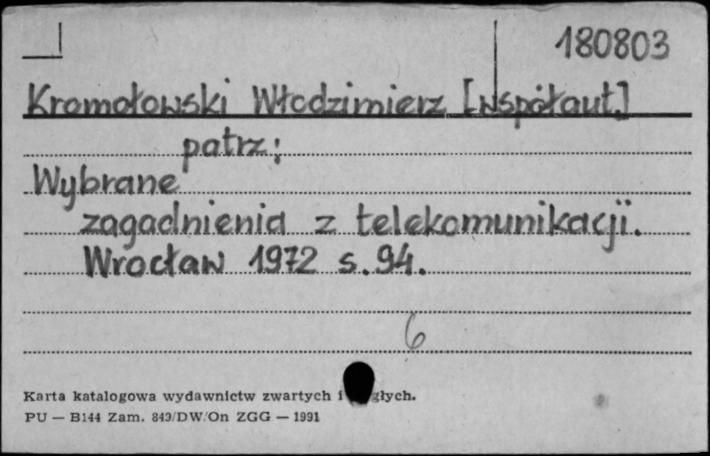 180803
Kromołowski Włodzimierz [współaut.]
patrz:
Wybrane
zagadnienia z telekomunikacji.
Wrocław 1972 s. 94.
6
Karta katalogowa wydawnictw zwartych i głych.
PU — B144 Zam. 849/DW/On ZGG — 1991